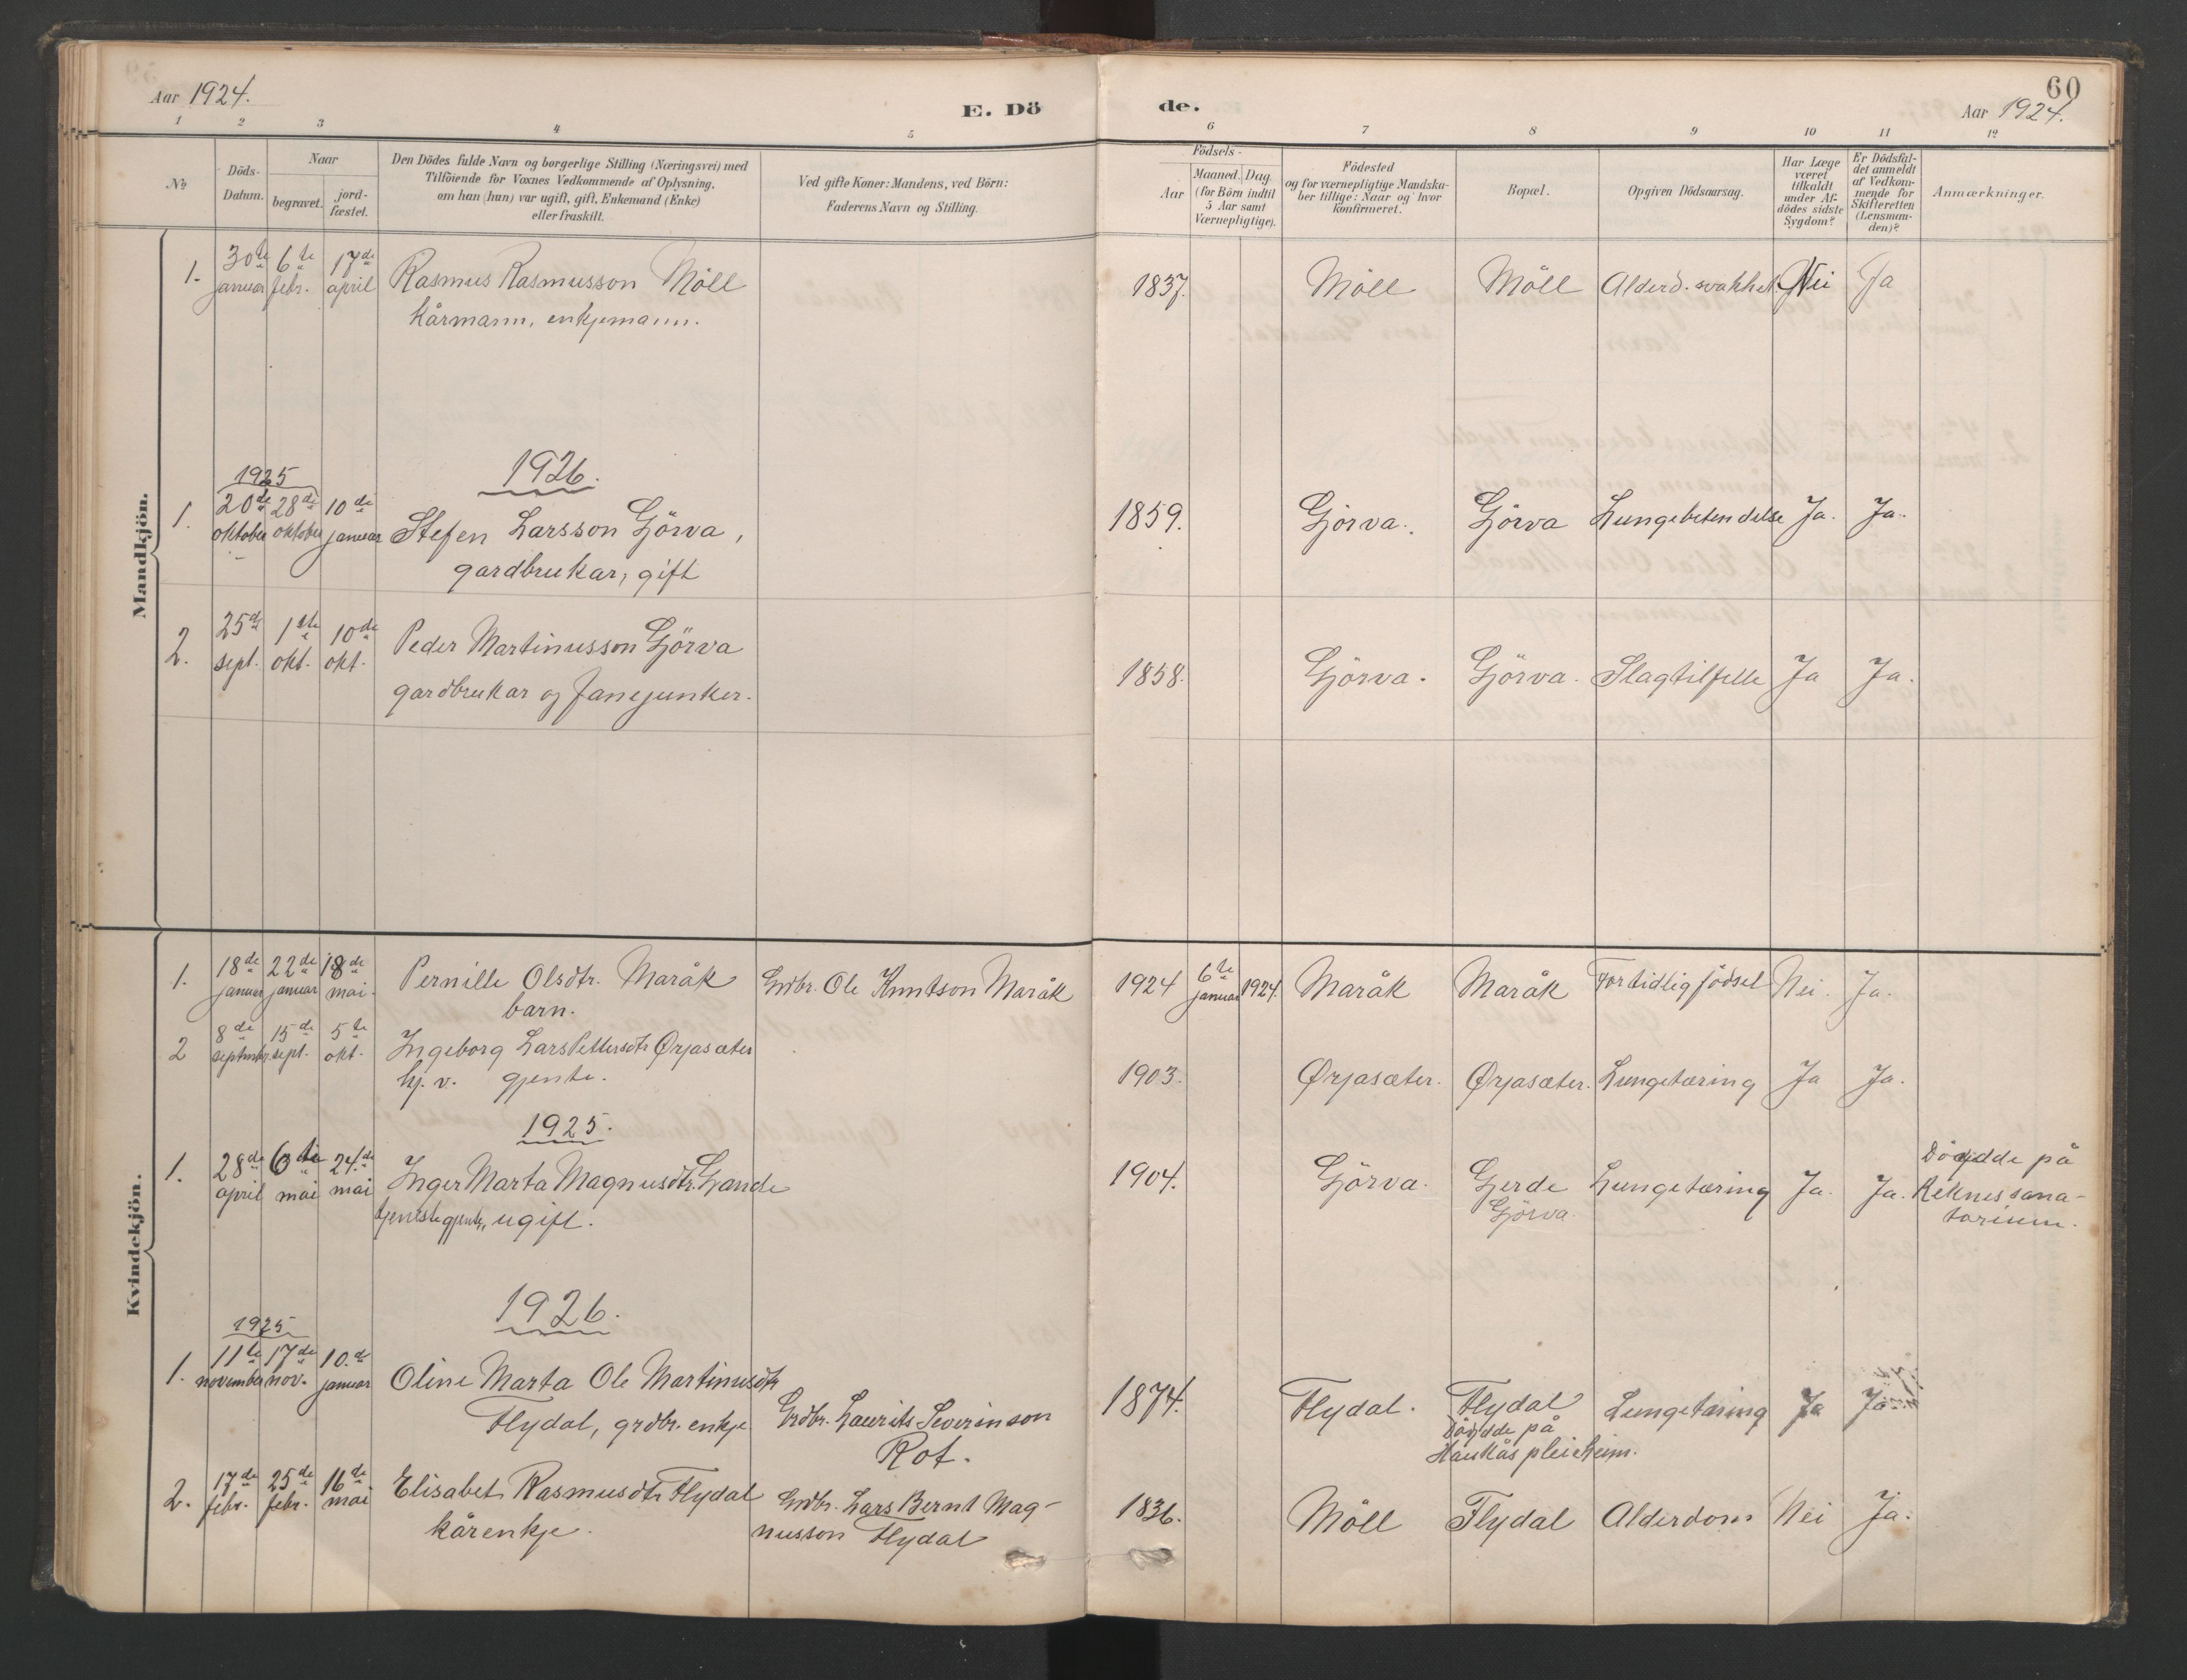 Aar 1924.
E. Dö
de.
60
Aar 1924.
1 2 3 4 5 6 7 8 9 10 11 12
No
Döds-
Datum.
Naar
begravet.
jord-
fæstet.
Den Dödes fulde Navn og borgerlige Stilling (Næringsvei) med
Tilföiende for Voxnes Vedkommende af Oplysning,
om han (hun) var ugift, gift, Enkemand (Enke)
eller fraskilt.
Ved gifte Koner: Mandens, ved Börn:
Faderens Navn og Stilling.
Födsels-
Aar
Maaned. Dag.
(for Börn indtil
5 Aar samt
Værnepligtige).
Födested
og for værnepligtige Mandska-
ber tillige: Naar og hvor
konfirmeret.
Bopæl.
Opgiven Dödsaarsag.
Har Læge
været
tilkaldt
under Af-
dödes sidste
Sygdom?
Er Dödsfal-
det anmeldt
af Vedkom-
mende for
Skifteretten
(Lensman-
den)?
Anmærkninger.
Mandkjön.
1. 30te januar 6te febr. 17de april Rasmus Rasmusson Möll 1837. Möll Möll Alderd. svakhet Nei Ja
kårmann, enkjemann.
1926.
1925
1. 20de oktober 28de oktober 10de januar Stefen Larsson Gjörva, 1859. Gjörva. Gjörva Lungebetendelse Ja. Ja.
gardbrukar, gift
2. 25de sept. 1ste okt. 10de okt. Peder Martinusson Gjörva 1858. Gjörva. Gjörva. Slagtilfelle Ja Ja.
gardbrukar og fanejunker.
Kvindekjön.
1. 18de januar 22de januar 18de mai. Pernille Olsdtr. Maråk Grdbr. Ole Knutson Maråk 1924 6te januar 1924. Maråk Maråk For tidlig födsel Nei. Ja.
barn.
2 8de septmbr. 15de sept. 5te okt. Ingeborg Lars Pettersdtr Ørjasæter 1903. Ørjasæter. Ørjasæter. Lungetæring Ja Ja.
hj. v. gjente.
1925.
1. 28de april 6te mai 24.de mai Inger Marta Magnusdtr. Gjørde 1904. Gjörva. Gjerde Gjörva. Lungetæring Ja. Ja. Döydde på
Reknes sana-
torium.
tjenestegjente, ugift.
1926.
1925
1. 11te november 17de nov. 10.de januar Oline Marta Ole Martinusdtr 1874. Flydal. Flydal Lungetæring Ja Ja.
Flydal, grdbr. enkje Grdbr. Laurits Severinson
Rot.
Döydde på
Haukås pleieheim.
2. 17de febr. 25de febr. 16de mai Elisabet Rasmusdtr Flydal Grdbr. Lars Bernt Mag-
nusson Flydal 1836. Möll Flydal Alderdom Nei Ja.
kårenkje.